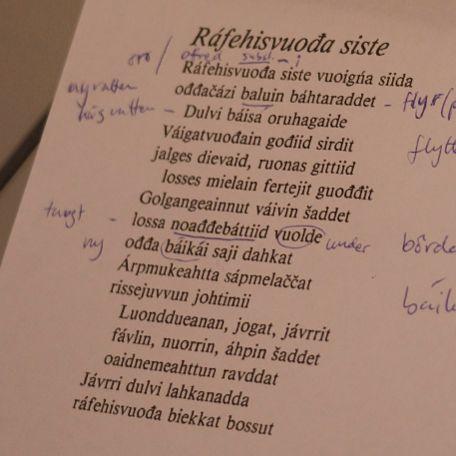 Ráfehisvuođa siste
oro / ofred subst. - i
Ráfehisvuođa siste vuoigŋa siida
nyvatten
ođđačázi baluin báhtaraddet - flyr
högvatten - Dulvi báisa oruhagaide
Váigatvuođain gođiid sirdit flytt
jalges dievaid, ruonas gittiid
losses mielain fertejit guođđit
Golgangeainnut váivin šaddet
tungt - lossa noađđebáttiid vuolde under börd
ny ođđa báikái saji dahkat
Árpmukeahtta sápmelaččat
rissejuvvun johtimii báik
Luonddueanan, jogat, jávrrit
fávlin, nuorrin, áhpin šaddet
oaidnemeahttun ravddat
Jávrri dulvi lahkanadda
ráfehisvuođa biekkat bossut